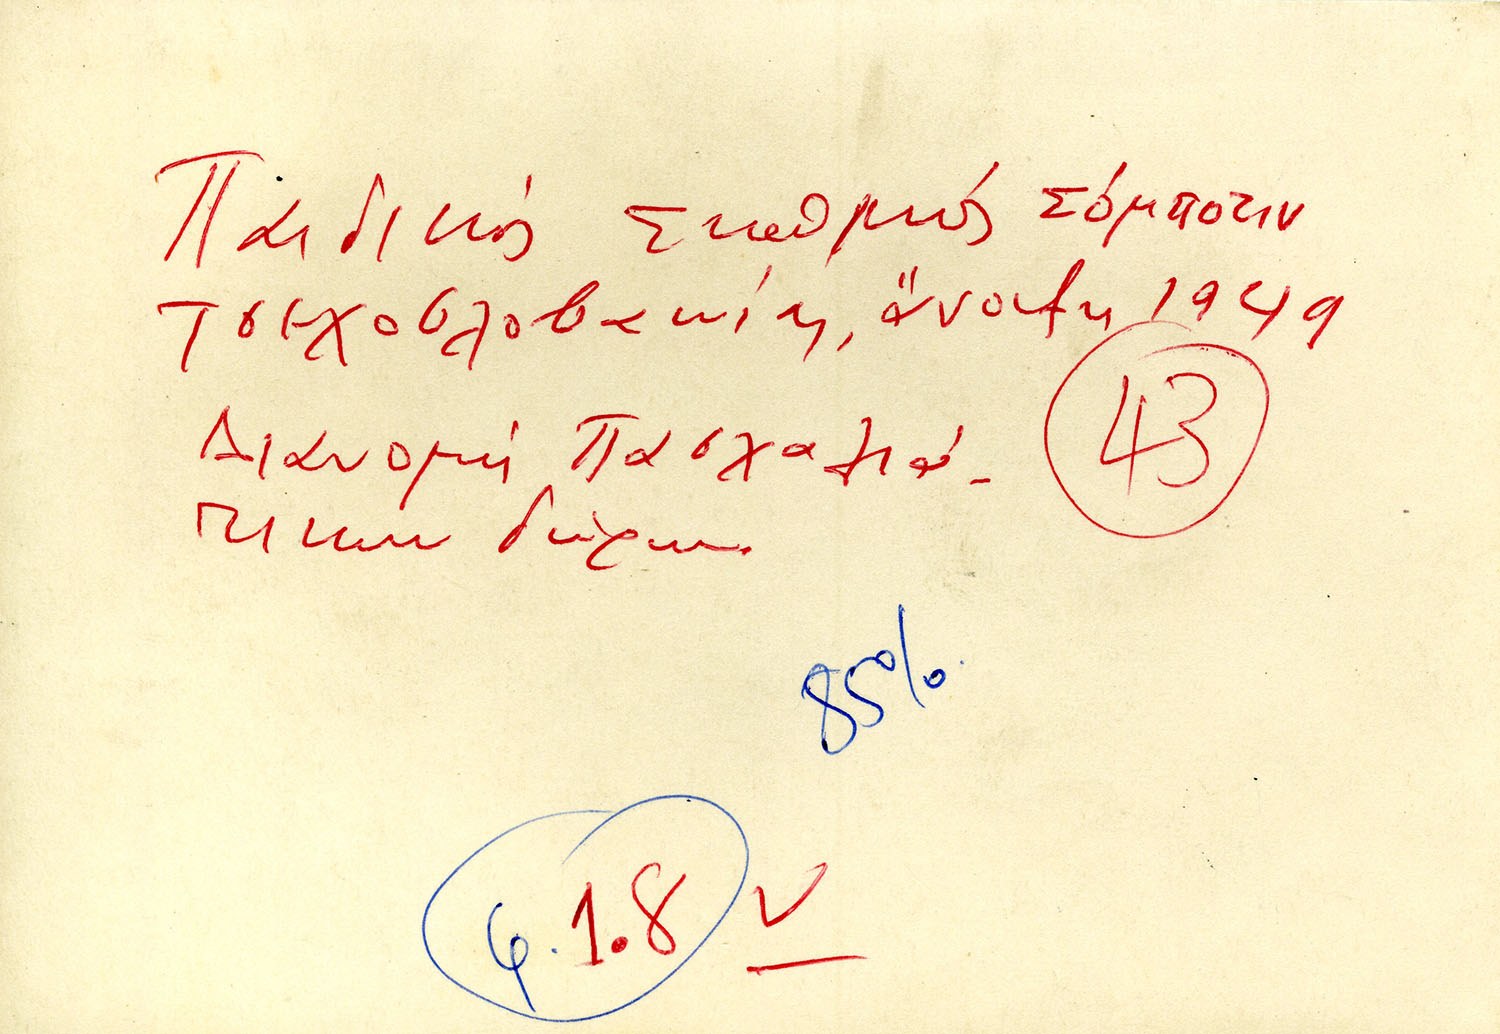 Παιδικός Σταθμός Σόμποτιν
Τσεχοσλοβακία, ἄνοιξη 1949
43
Διανομή Πασχαλιά-
τικων δώρων.
85%
φ. 1.8 ν